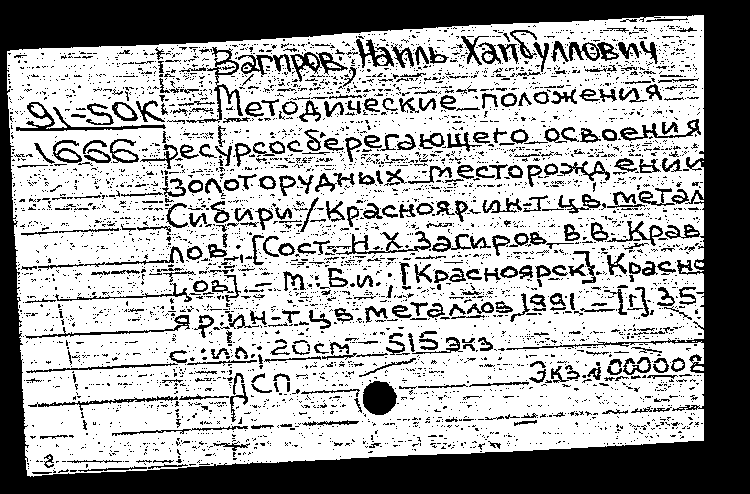 Загиров, Наиль Хайбуллович
91-SOK
1666
Методические положения
ресурсосберегающего освоения
золоторудных месторождений
Сибири / Краснояр. ин-т цв. метал
лов ; [Сост. Н. Х. Загиров, В. В. Крав
цов] – М. : Б.и. ; [Красноярск] : Красно
яр. ин-т цв. металлов, 1991 – [1], 35
с. : ил. ; 20см – 515 экз.
ДСП.
Экз. № 000002
8